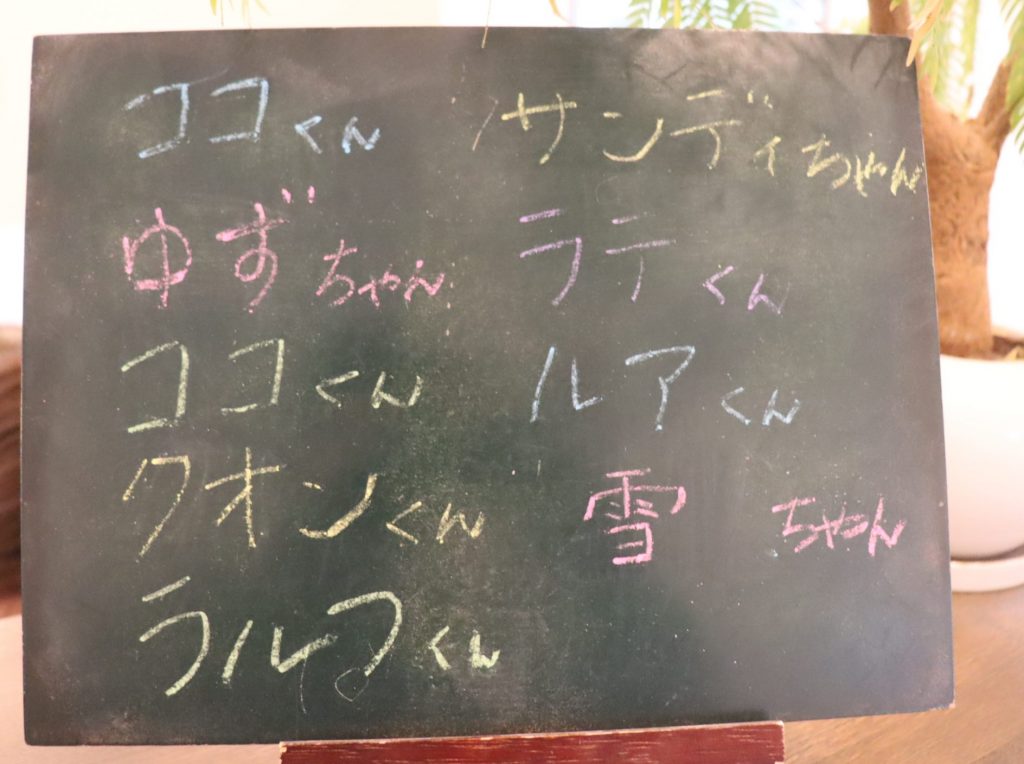 ココくん
ゆずちゃん
ココくん
クオンくん
ラルフくん
サンディちゃん
ラテくん
ルアくん
雪ちゃん